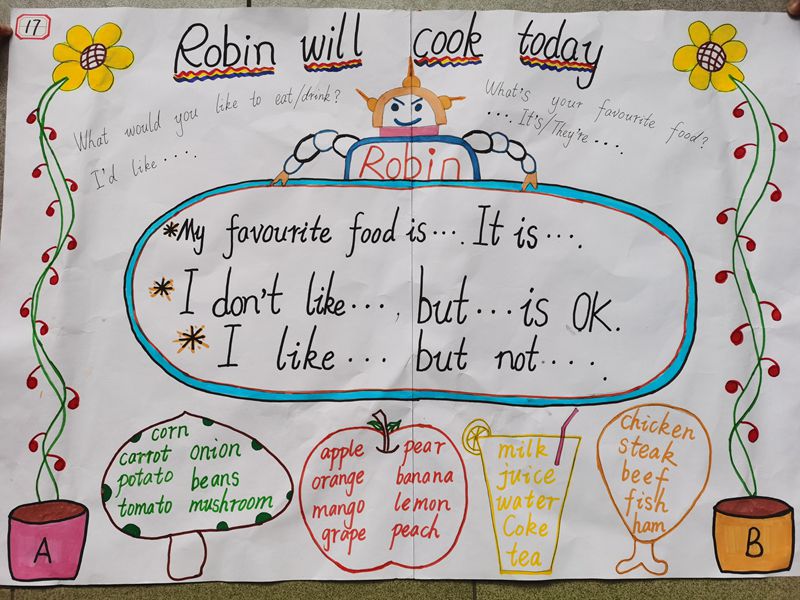 17
Robin will cook today
What would you like to eat/drink?
I'd like ....
What's your favourite food?
.... It's/They're ....
Robin
*My favourite food is.... It is....
*I don't like..., but...is OK.
*I like ... but not .....
corn
carrot onion
potato beans
tomato mushroom
apple pear
orange banana
mango lemon
grape peach
milk
juice
water
Coke
tea
chicken
steak
beef
fish
ham
A
B